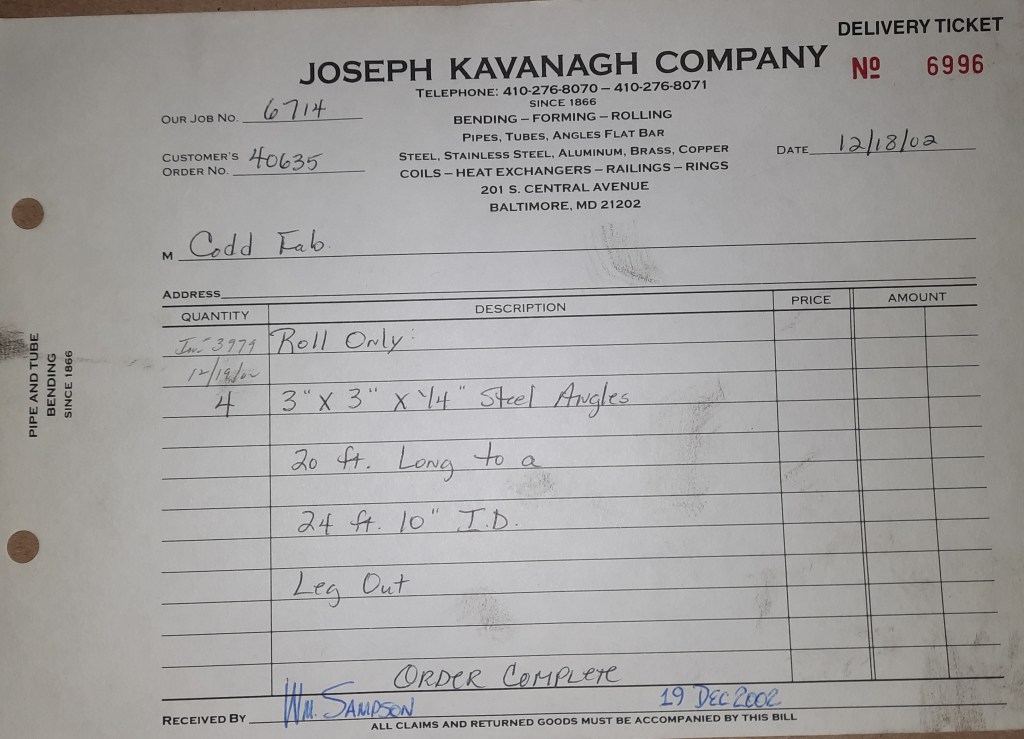 DELIVERY TICKET
JOSEPH KAVANAGH COMPANY
Nº 6996
TELEPHONE: 410-276-8070 – 410-276-8071
SINCE 1866
OUR JOB NO. 6714
BENDING – FORMING – ROLLING
PIPES, TUBES, ANGLES FLAT BAR
CUSTOMER'S ORDER NO. 40635
STEEL, STAINLESS STEEL, ALUMINUM, BRASS, COPPER
DATE 12/18/02
COILS – HEAT EXCHANGERS – RAILINGS – RINGS
201 S. CENTRAL AVENUE
BALTIMORE, MD 21202
M Codd Fab.
ADDRESS
QUANTITY DESCRIPTION PRICE AMOUNT
Inv 3979 Roll Only:
12/19/02
4 3" X 3" X 1/4" Steel Angles
20 ft. Long to a
24 ft. 10" I.D.
Leg Out
ORDER COMPLETE
RECEIVED BY WM. SAMPSON 19 DEC 2002
ALL CLAIMS AND RETURNED GOODS MUST BE ACCOMPANIED BY THIS BILL
PIPE AND TUBE
BENDING
SINCE 1866